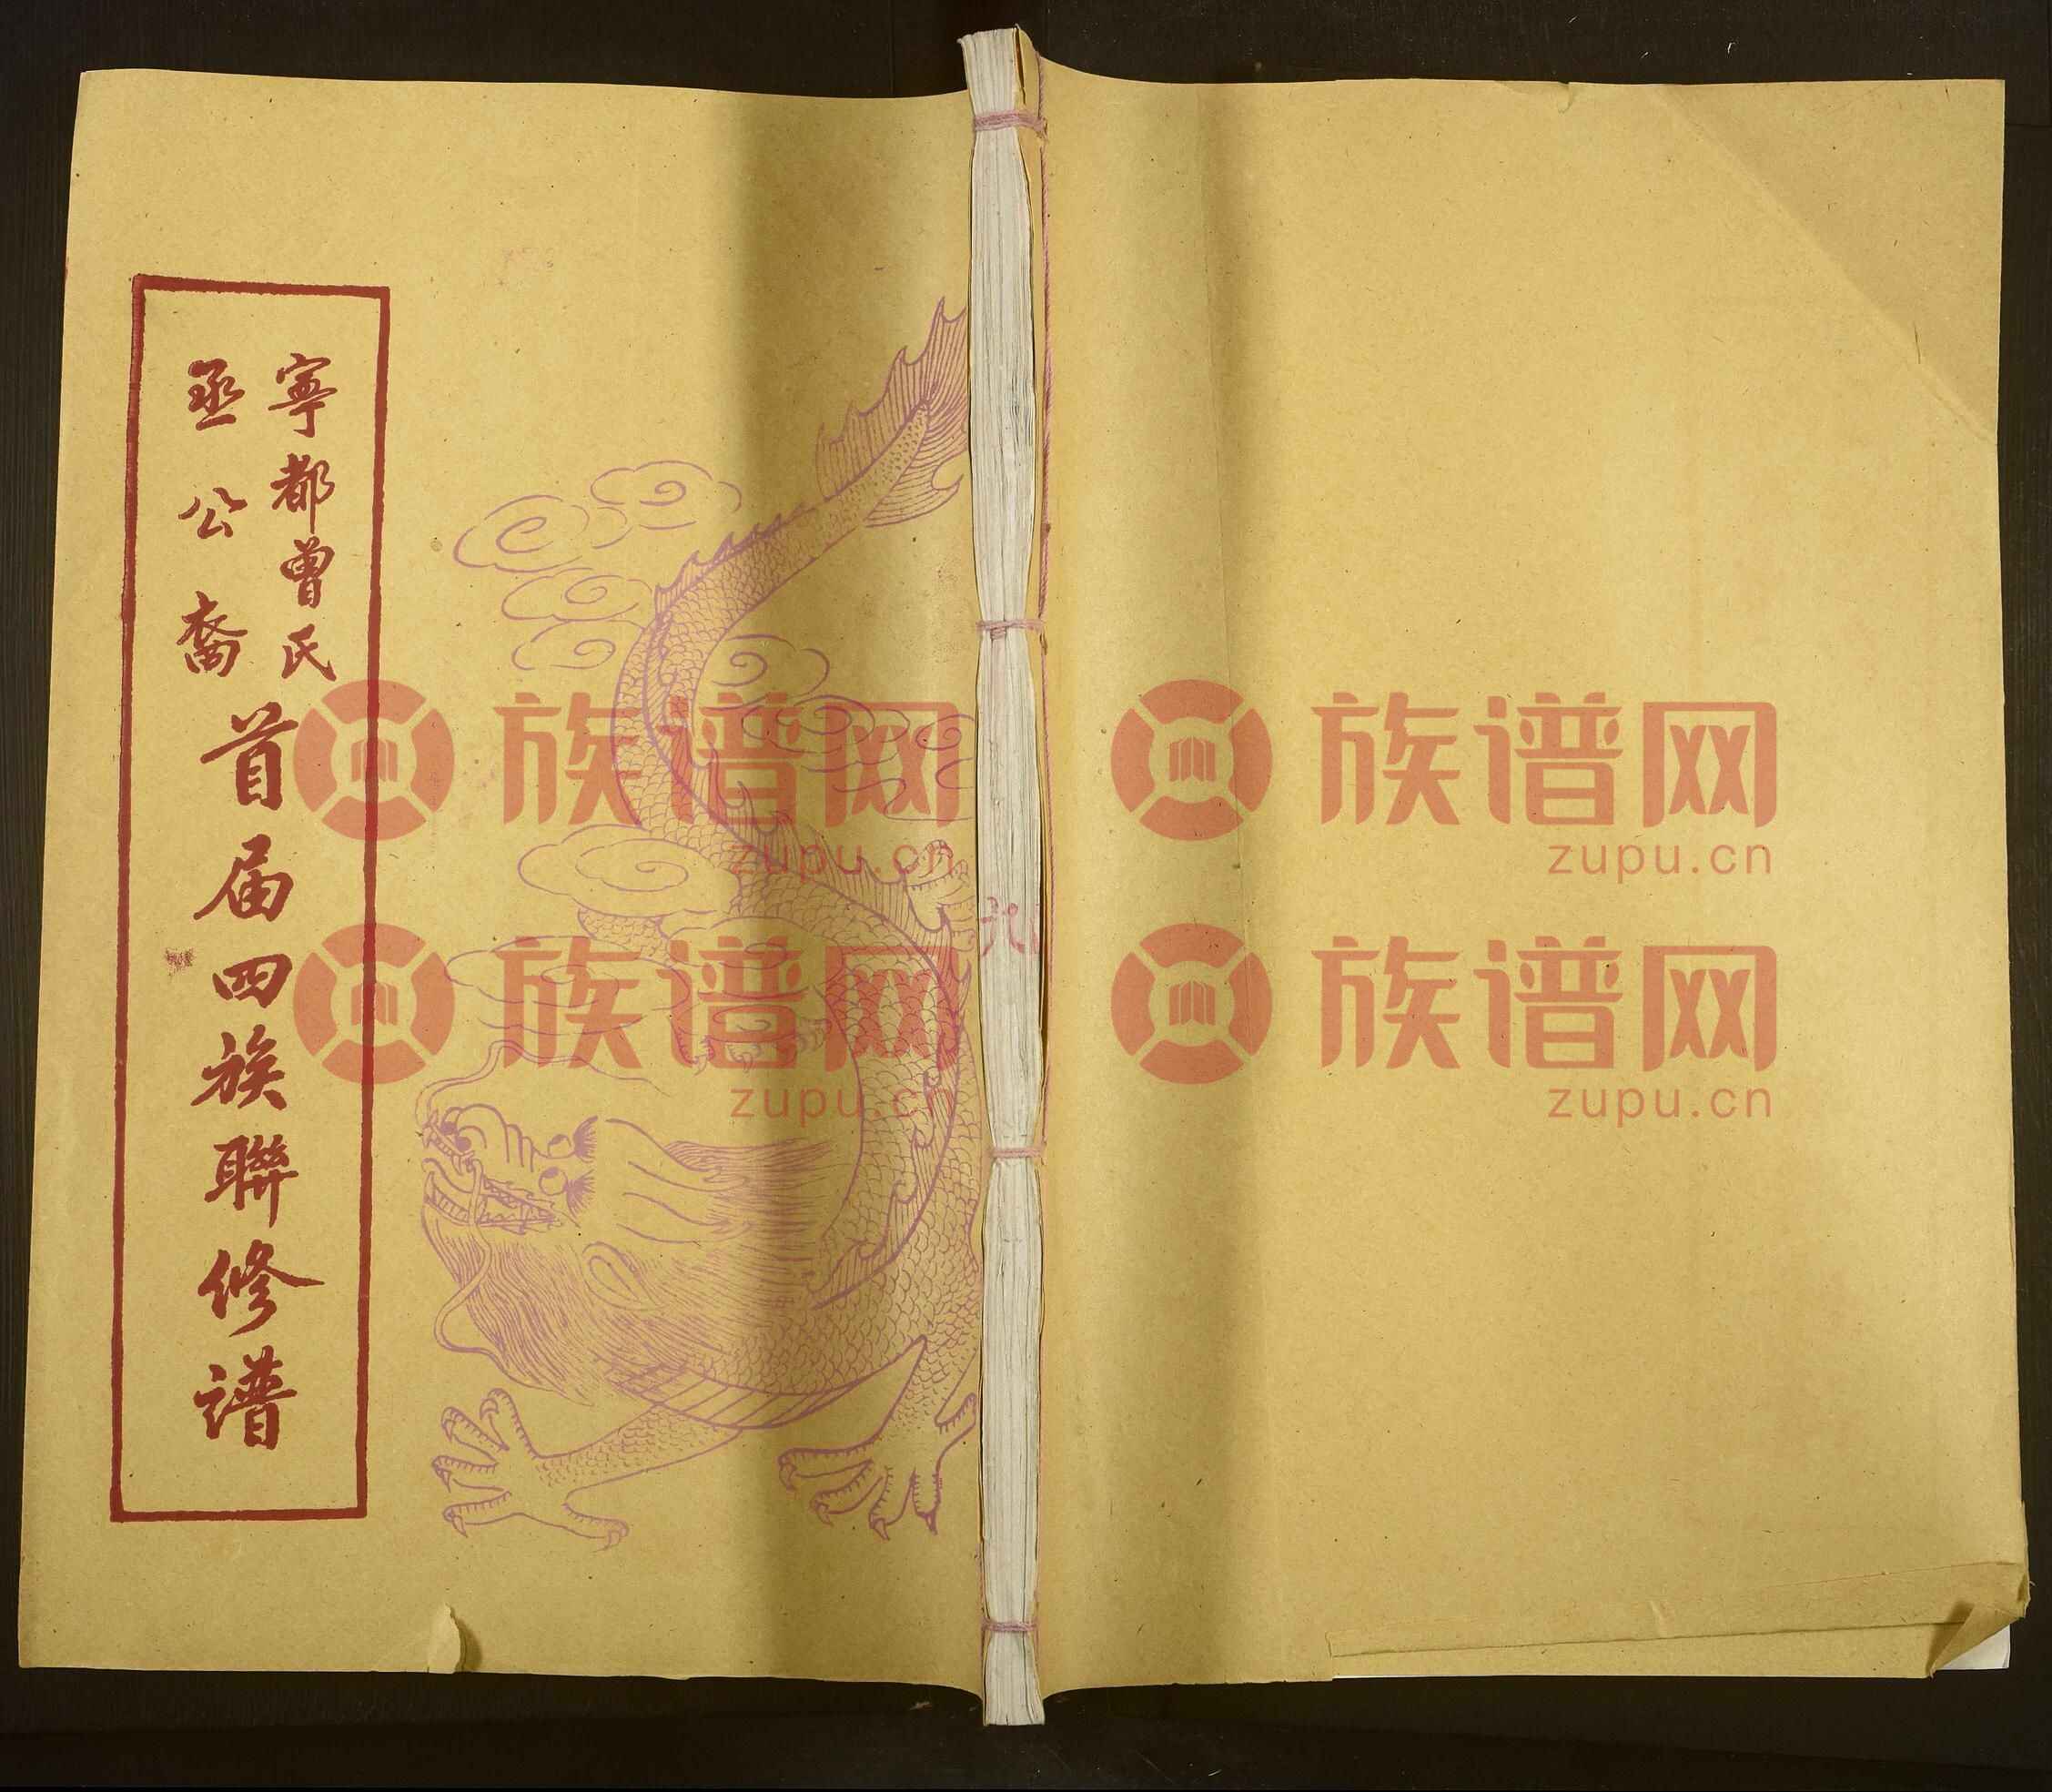 寧都曾氏
丞公裔
首届四族聯修譜
族谱网
zupu.cn
族谱网
zupu.cn
族谱网
zupu.cn
族谱网
zupu.cn